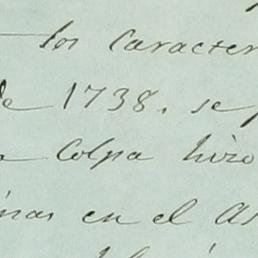 los caracter
de 1738. se
Colpa hizo
inas en el As